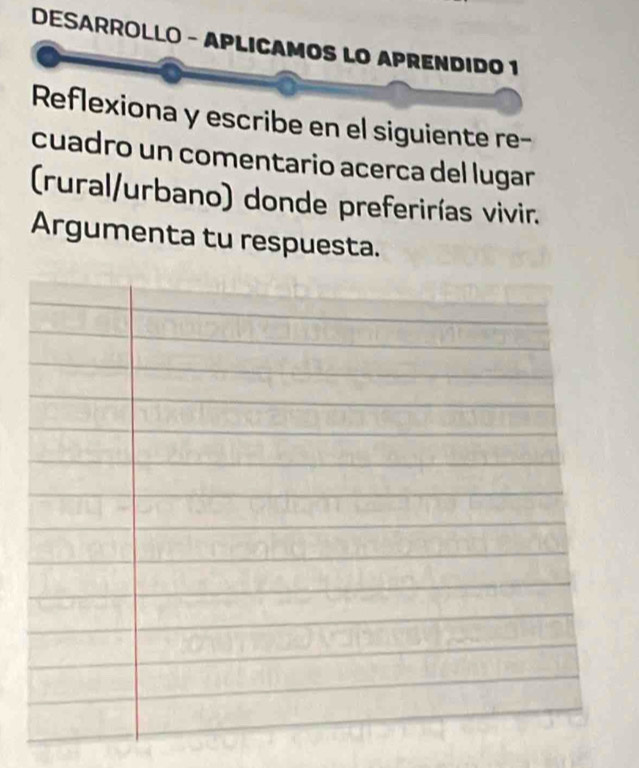 DESARROLLO - APLICAMOS LO APRENDIDO 1
Reflexiona y escribe en el siguiente re-
cuadro un comentario acerca del lugar
(rural/urbano) donde preferirías vivir.
Argumenta tu respuesta.